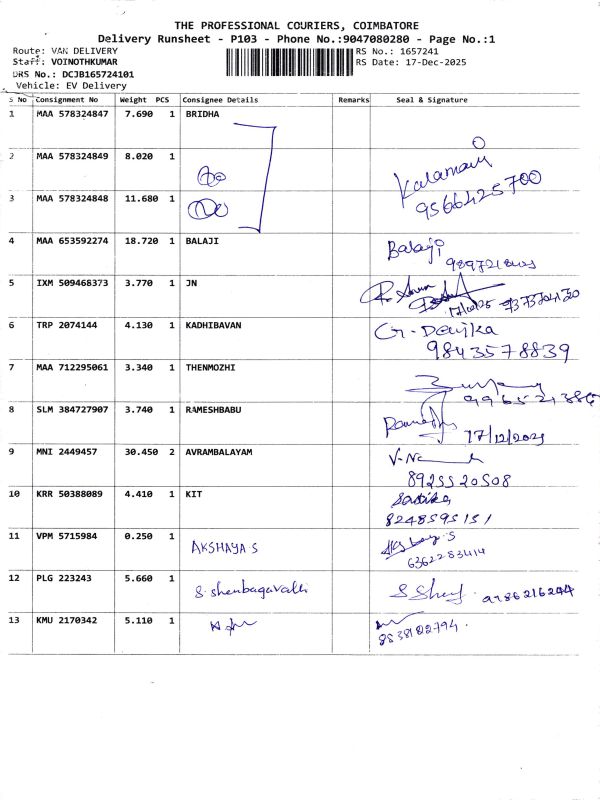 THE PROFESSIONAL COURIERS, COIMBATORE
Delivery Runsheet - P103 - Phone No.:9047080280 - Page No.:1
Route: VAN DELIVERY RS No.: 1657241
Staff: VOINOTHKUMAR RS Date: 17-Dec-2025
DRS No.: DCJB165724101
Vehicle: EV Delivery
S No Consignment No Weight PCS Consignee Details Remarks Seal & Signature
1 MAA 578324847 7.690 1 BRIDHA
2 MAA 578324849 8.020 1
Kalamani
3 MAA 578324848 11.680 1
9566425700
4 MAA 653592274 18.720 1 BALAJI Balaji
5 IXM 509468373 3.770 1 JN
6 TRP 2074144 4.130 1 KADHIBAVAN G. Devika
9843578839
7 MAA 712295061 3.340 1 THENMOZHI
8 SLM 384727907 3.740 1 RAMESHBABU
17/12/2025
9 MNI 2449457 30.450 2 AVRAMBALAYAM
8925520508
10 KRR 50388089 4.410 1 KIT
8248595151
11 VPM 5715984 0.250 1 AKSHAYA S
6362283414
12 PLG 223243 5.660 1 S. Shenbagavalli
13 KMU 2170342 5.110 1